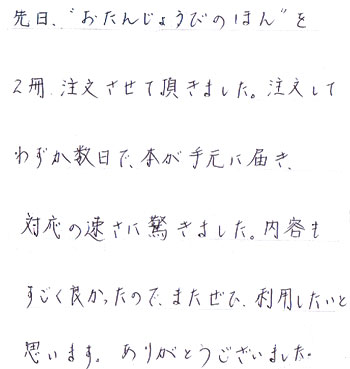 先日、"おたんじょうびのほん"を
2冊、注文させて頂きました。注文して
わずか数日で、本が手元に届き、
対応の速さに驚きました。内容も
すごく良かったので、またぜひ、利用したいと
思います。ありがとうございました。